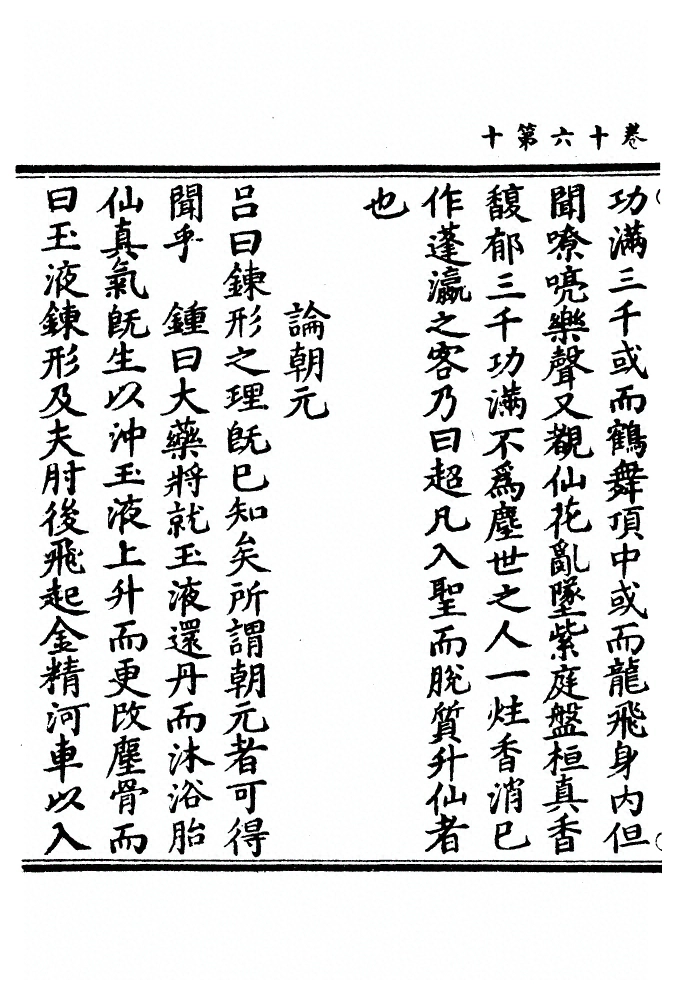 卷十六第十
功滿三千或而鶴舞頂中或而龍飛身內但
聞嘹喨樂聲又覩仙花亂墜紫庭盤桓真香
馥郁三千功滿不爲塵世之人一炷香消已
作蓬瀛之客乃曰超凡入聖而脫質升仙者
也
論朝元
呂曰鍊形之理旣已知矣所謂朝元者可得
聞乎　鍾曰大藥將就玉液還丹而沐浴胎
仙真氣旣生以沖玉液上升而更改塵骨而
曰玉液鍊形及夫肘後飛起金精河車以入